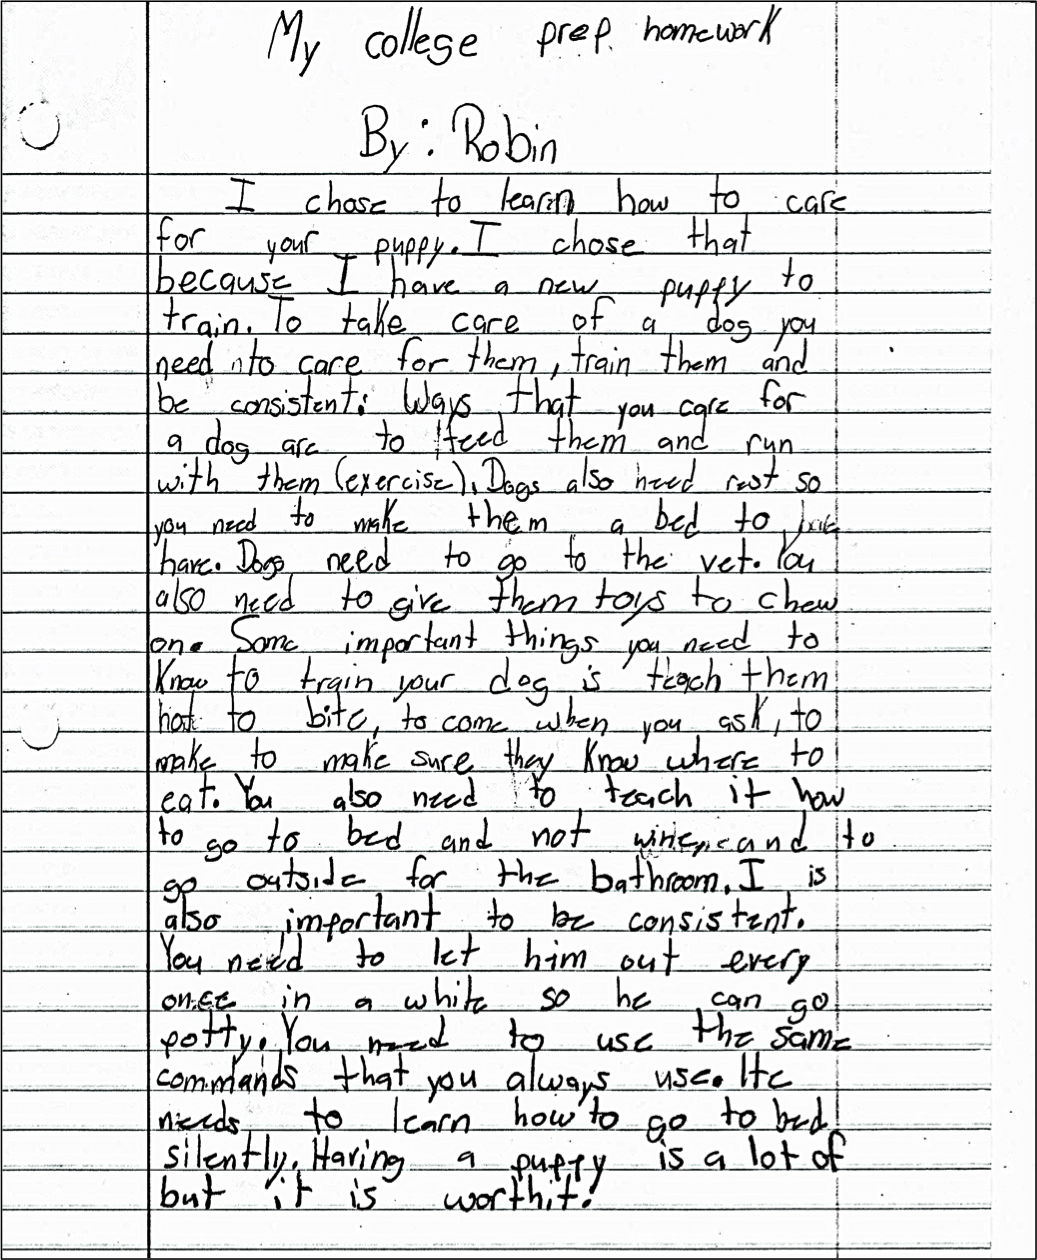 My college prep. homework
By: Robin
I chose to learn how to care
for your puppy. I chose that
because I have a new puppy to
train. To take care of a dog you
need to care for them, train them and
be consistent. Ways that you care for
a dog are to feed them and run
with them (exercise). Dogs also need rest so
you need to make them a bed to
have. Dogs need to go to the vet. You
also need to give them toys to chew
on. Some important things you need to
Know to train your dog is teach them
not to bite, to come when you ask, to
make to make sure they Know where to
eat. You also need to teach it how
to go to bed and not wine, and to
go outside for the bathroom. I is
also important to be consistent.
You need to let him out every
once in a while so he can go
potty. You need to use the same
commands that you always use. He
needs to learn how to go to bed
silently. Having a puppy is a lot of
but it is worthit!